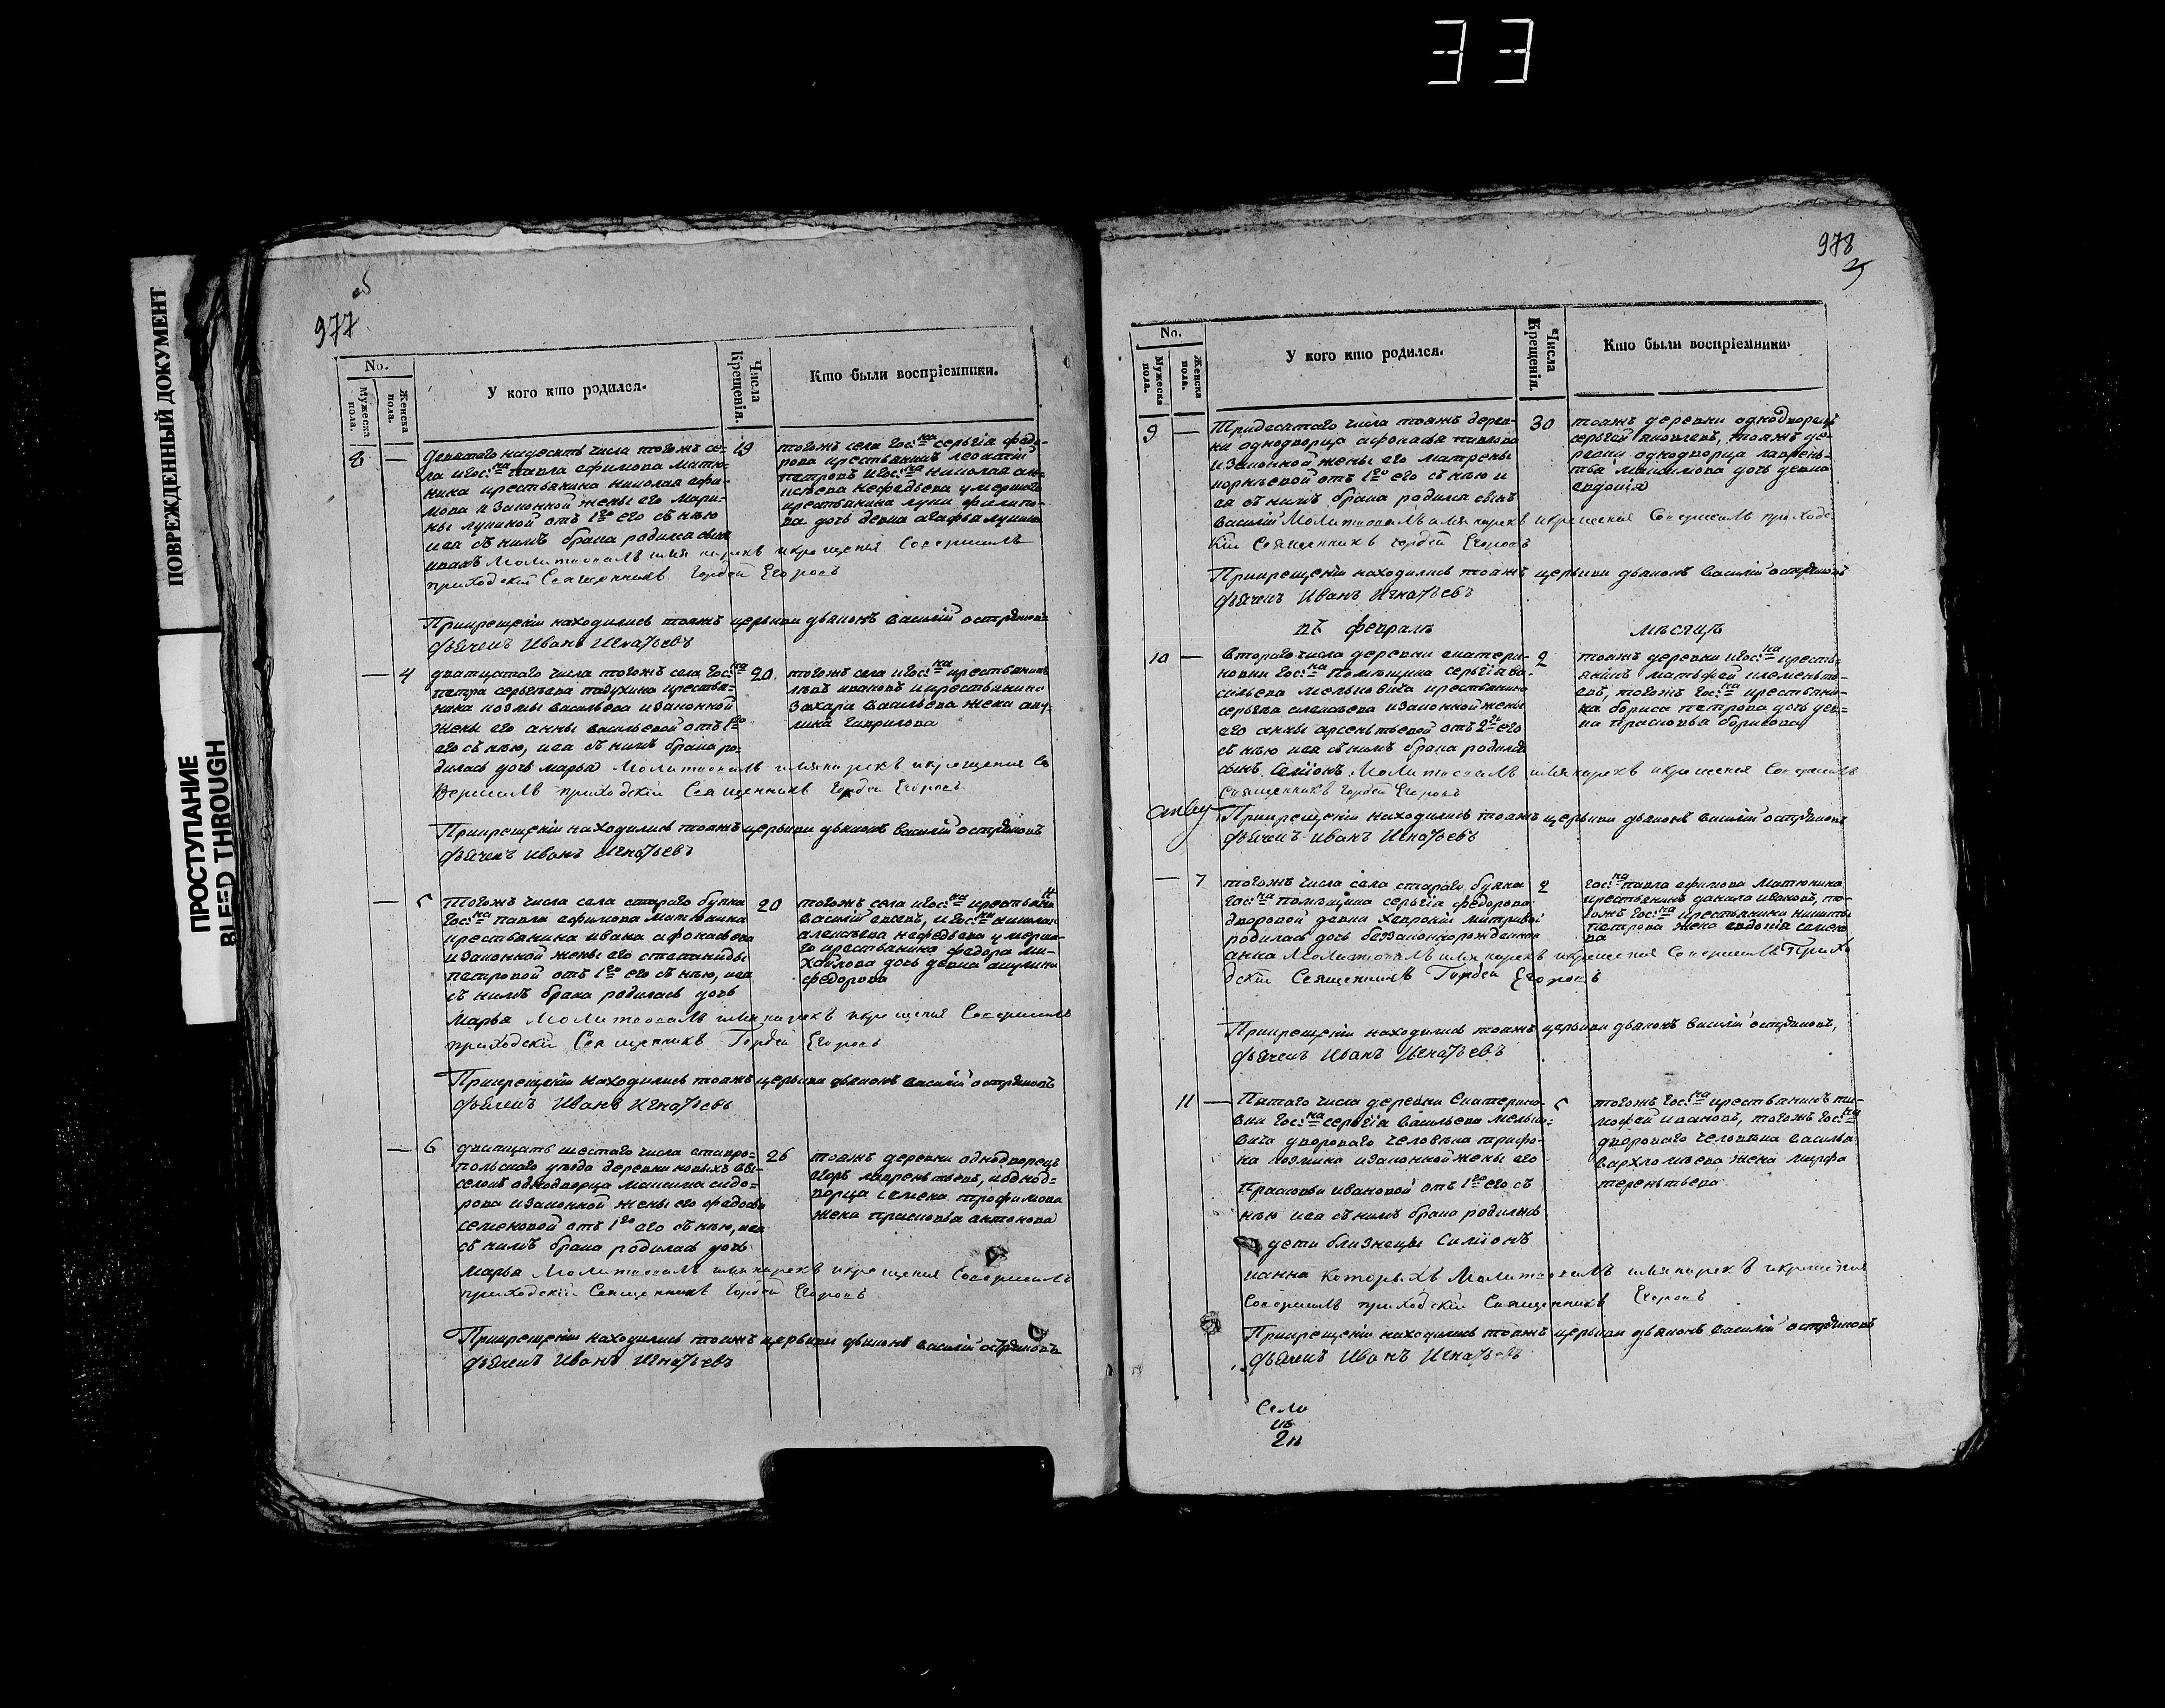 33
ПОВРЕЖДЕННЫЙ ДОКУМЕНТ
ПРОСТУПАНИЕ
BLEED THROUGH
об
977
No.
Мужеска пола.
Женска пола.
У кого кто родился.
Числа Крещенія.
Кто были воспріемники.
8 — 19
девятого надесять числа тогожъ се-
ла игос:на павла ефимова матю-
нина крестьянина николая ефи-
мова изаконной жены его мари-
ны лукиной отъ 1го его съ нею
иея съ нимъ брака родился сынъ
иванъ Молитвовалъ имя нарекъ икрещенія Совершилъ
приходскій Священникъ Гордей Егоровъ
тогожъ села гос:на сергѣя федо-
рова крестьянинъ леонтій
петровъ игос:на николая але-
ксѣева нефедьева умершаго
крестьянина луки филипо-
ва дочь девка агафья лукина
Прикрещеніи находились тояжъ церькви дьяконъ василій остряковъ
дьячекъ Иванъ Игнатьевъ
— 4 20
дватцатого числа тогожъ села гос:на
петра сергѣева падухина крестья-
нина козмы васильева изаконной
жены его анны васильевой отъ 1го
его съ нею, иея съ нимъ брака ро-
дилась дочь марья Молитвовалъ имя нарекъ икрещенія Со
вершилъ приходскій Священникъ Гордей Егоровъ
тогожъ села игос:на крестьянинъ
левъ ивановъ икрестьянина
Захара васильева жена аку-
лина гаврилова
Прикрещеніи находились тояжъ церькви дьяконъ василій остряковъ
дьячекъ Иванъ Игнатьевъ
— 5 20
тогожъ числа села стараго буяна
гос:на павла ефимова Матюнина
крестьянина ивана афонасьева
изаконной жены его степаниды
петровой отъ 1го его съ нею, иея
съ нимъ брака родилась дочь
Марья Молитвовалъ имя нарекъ икрещенія Совершилъ
приходскій Священникъ Гордей Егоровъ
тогожъ села игос:на крестьянинъ
василій игос:на николая
алексѣева нефедьева умерша-
го крестьянина федора ми-
хайлова дочь девка акулина
федорова
Прикрещеніи находились тояжъ церькви дьяконъ василій остряковъ
дьячекъ Иванъ Игнатьевъ
— 6 26
дватцать шестаго числа ставро-
польскаго уезда деревни новыхъ вы-
селокъ однодворца Максима сидо-
рова изаконной жены его федосьи
семеновой отъ 1го его съ нею, иея
съ нимъ брака родилась дочь
Марья Молитвовалъ имя нарекъ икрещенія Совершилъ
приходскій Священникъ Гордей Егоровъ
тояжъ деревни однодворецъ
егоръ лаврентьевъ, иоднод-
ворца семена трофимова
жена прасковья антонова
Прикрещеніи находились тояжъ церькви дьяконъ василій остряковъ
дьячекъ Иванъ Игнатьевъ
978
No.
Мужеска пола.
Женска пола.
У кого кто родился.
Числа Крещенія.
Кто были воспріемники.
9 — 30
Тридесятаго числа тояжъ дерев-
ни однодворца афонасья павлова
изаконной жены его матрены
корнѣевой отъ 1го его съ нею и
ея съ нимъ брака родился сынъ
василій Молитвовалъ имя нарекъ икрещенія Совершилъ приходс-
кій Священникъ Гордей Егоровъ
тояжъ деревни однодворецъ
сергѣй яковлевъ, тояжъ де-
ревни однодворца лаврень-
тья максимова дочь девка
евдокія
Прикрещеніи находились тояжъ церькви дьяконъ василій остряковъ
дьячекъ Иванъ Игнатьевъ
въ февралѣ мѣсяцѣ
10 — 2
втораго числа деревни екатери-
новки гос:на помѣщика сергѣя ва-
сильева мельковича крестьянина
сергѣя алексѣева изаконной жены
его анны арсентьевой отъ 2го его
съ нею иея съ нимъ брака родился
сынъ Симіонъ Молитвовалъ имя нарекъ икрещенія Совершилъ
священникъ Гордей Егоровъ
тояжъ деревни игос:на кресть-
янинъ матьфей клементь-
евъ, тогожъ гос:на крестьяни-
на бориса петрова дочь дев-
ка прасковья борисова
Прикрещеніи находились тояжъ церькви дьяконъ василій остряковъ
дьячекъ иванъ Игнатьевъ
— 7 2
тогожъ числа села стараго буяна
гос:на помѣщика сергѣя федорова
дворовой девки Хавроніи
родилась дочь беззаконнорожденная
анна Молитвовалъ имя нарекъ икрещенія Совершилъ Прихо
дскій Священникъ Гордей Егоровъ
гос:на павла ефимова Матюнина
крестьянинъ данила ивановъ, то-
гожъ гос:на крестьянина никиты
петрова жена евдокія семено
ва
Прикрещеніи находились тояжъ церькви дьяконъ василій остряковъ,
дьячекъ Иванъ Игнатьевъ
11 — 5
Пятаго числа деревни Екатерино-
вки гос:на сергѣя васильева мелько-
вича двороваго человѣка трифо-
на козмина изаконной жены его
прасковьи ивановой отъ 1го его съ
нею иея съ нимъ брака родились
дети близнецы Симіонъ
ианна которыхъ Молитвовалъ имя нарекъ икрещенія
Совершилъ приходскій Священникъ Егоровъ
тогожъ гос:на крестьянинъ ти-
мофей ивановъ, тогожъ гос:на
двороваго человѣка василья
вархломѣева жена марфа
терентьева
Прикрещеніи находились тояжъ церькви дьяконъ василій остряковъ
дьячекъ Иванъ Игнатьевъ
Село